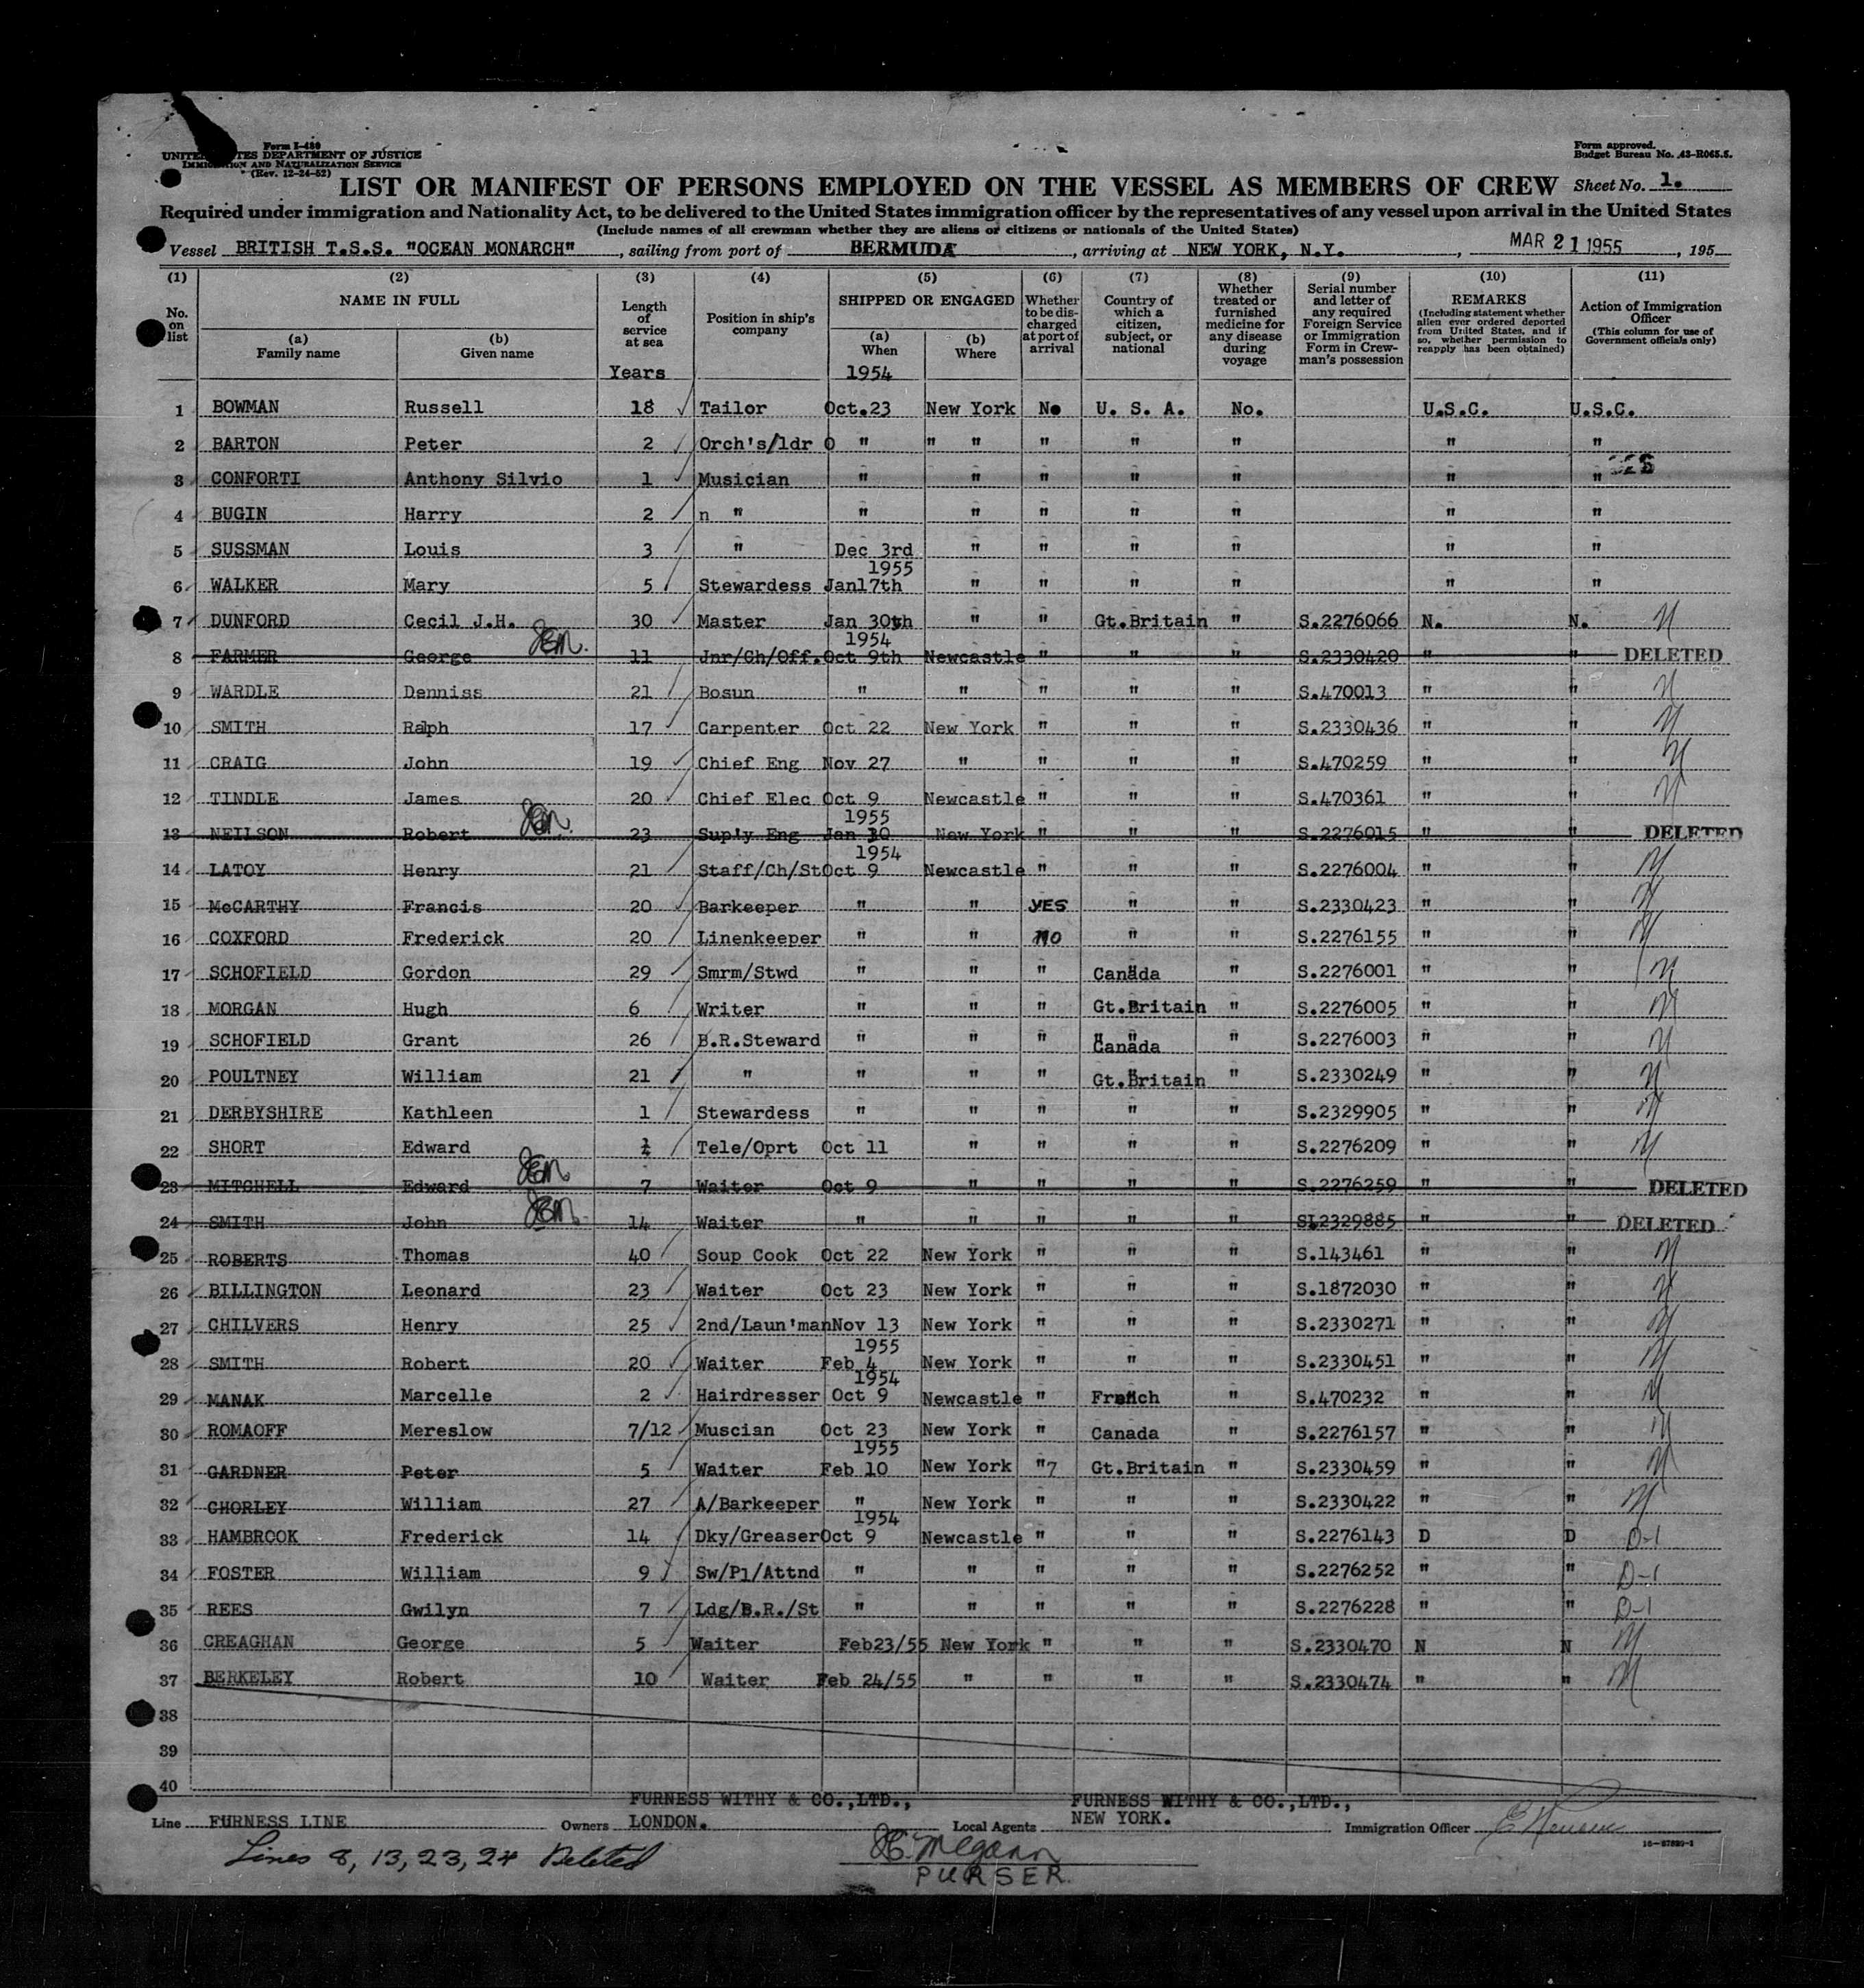 Form I-480
UNITED STATES DEPARTMENT OF JUSTICE
IMMIGRATION AND NATURALIZATION SERVICE
(Rev. 12-24-52)
Form approved.
Budget Bureau No. 43-R065.5.
LIST OR MANIFEST OF PERSONS EMPLOYED ON THE VESSEL AS MEMBERS OF CREW Sheet No. 1.
Required under immigration and Nationality Act, to be delivered to the United States immigration officer by the representatives of any vessel upon arrival in the United States
(Include names of all crewman whether they are aliens or citizens or nationals of the United States)
Vessel BRITISH T.S.S. "OCEAN MONARCH", sailing from port of BERMUDA, arriving at NEW YORK, N.Y., MAR 21 1955, 195
(1) (2) (3) (4) (5) (6) (7) (8) (9) (10) (11)
No. on list
NAME IN FULL
(a) Family name
(b) Given name
Length of service at sea
Years
Position in ship's company
SHIPPED OR ENGAGED
(a) When
1954
(b) Where
Whether to be discharged at port of arrival
Country of which a citizen, subject, or national
Whether treated or furnished medicine for any disease during voyage
Serial number and letter of any required Foreign Service or Immigration Form in Crewman's possession
REMARKS
(Including statement whether alien ever ordered deported from United States, and if so, whether permission to reapply has been obtained)
Action of Immigration Officer
(This column for use of Government officials only)
1 BOWMAN Russell 18 Tailor Oct.23 New York No U. S. A. No. U.S.C. U.S.C.
2 BARTON Peter 2 Orch's/ldr O " " " " " " " "
3 CONFORTI Anthony Silvio 1 Musician " " " " " " "
4 BUGIN Harry 2 n " " " " " " " "
5 SUSSMAN Louis 3 " Dec 3rd " " " " " "
1955
6 WALKER Mary 5 Stewardess Jan17th " " " " " "
7 DUNFORD Cecil J.H. 30 Master Jan 30th " " Gt.Britain " S.2276066 N. N. N
1954
8 FARMER George 11 Jnr/Ch/Off. Oct 9th Newcastle " " " S.2330420 " " DELETED
9 WARDLE Denniss 21 Bosun " " " " " S.470013 " " N
10 SMITH Ralph 17 Carpenter Oct 22 New York " " " S.2330436 " " N
11 CRAIG John 19 Chief Eng Nov 27 " " " " S.470259 " " N
12 TINDLE James 20 Chief Elec Oct 9 Newcastle " " " S.470361 " " N
1955
13 NEILSON Robert 23 Sup'y Eng Jan 30 New York " " " S.2276015 " " DELETED
1954
14 LATOY Henry 21 Staff/Ch/St Oct 9 Newcastle " " " S.2276004 " " N
15 McCARTHY Francis 20 Barkeeper " " YES " " S.2330423 " " N
16 COXFORD Frederick 20 Linenkeeper " " NO " " S.2276155 " " N
17 SCHOFIELD Gordon 29 Smrm/Stwd " " " Canada " S.2276001 " " N
18 MORGAN Hugh 6 Writer " " " Gt.Britain " S.2276005 " " N
19 SCHOFIELD Grant 26 B.R.Steward " " " Canada " S.2276003 " " N
20 POULTNEY William 21 " " " " Gt.Britain " S.2330249 " " N
21 DERBYSHIRE Kathleen 1 Stewardess " " " " " S.2329905 " " N
22 SHORT Edward Tele/Oprt Oct 11 " " " " S.2276209 " " N
23 MITCHELL Edward 7 Waiter Oct 9 " " " " S.2276259 " " DELETED
24 SMITH John 14 Waiter " " " " " SL2329885 " " DELETED
25 ROBERTS Thomas 40 Soup Cook Oct 22 New York " " " S.143461 " " N
26 BILLINGTON Leonard 23 Waiter Oct 23 New York " " " S.1872030 " " N
27 CHILVERS Henry 25 2nd/Laun'man Nov 13 New York " " " S.2330271 " " N
1955
28 SMITH Robert 20 Waiter Feb 4 New York " " " S.2330451 " " N
1954
29 MANAK Marcelle 2 Hairdresser Oct 9 Newcastle " French " S.470232 " " N
30 ROMAOFF Mereslow 7/12 Muscian Oct 23 New York " Canada " S.2276157 " " N
1955
31 GARDNER Peter 5 Waiter Feb 10 New York "7 Gt.Britain " S.2330459 " " N
32 CHORLEY William 27 A/Barkeeper " New York " " " S.2330422 " " N
1954
33 HAMBROOK Frederick 14 Dky/Greaser Oct 9 Newcastle " " " S.2276143 D D D-1
34 FOSTER William 9 Sw/Pl/Attnd " " " " " S.2276252 " " D-1
35 REES Gwilyn 7 Ldg/B.R./St " " " " " S.2276228 " " D-1
36 CREAGHAN George 5 Waiter Feb23/55 New York " " " S.2330470 N N N
37 BERKELEY Robert 10 Waiter Feb 24/55 " " " " S.2330474 " " N
38
39
40
Line FURNESS LINE Owners FURNESS WITHY & CO.,LTD., LONDON. Local Agents FURNESS WITHY & CO.,LTD., NEW YORK. Immigration Officer
16-67820-1
Lines 8, 13, 23, 24 Deleted
McGann
PURSER.